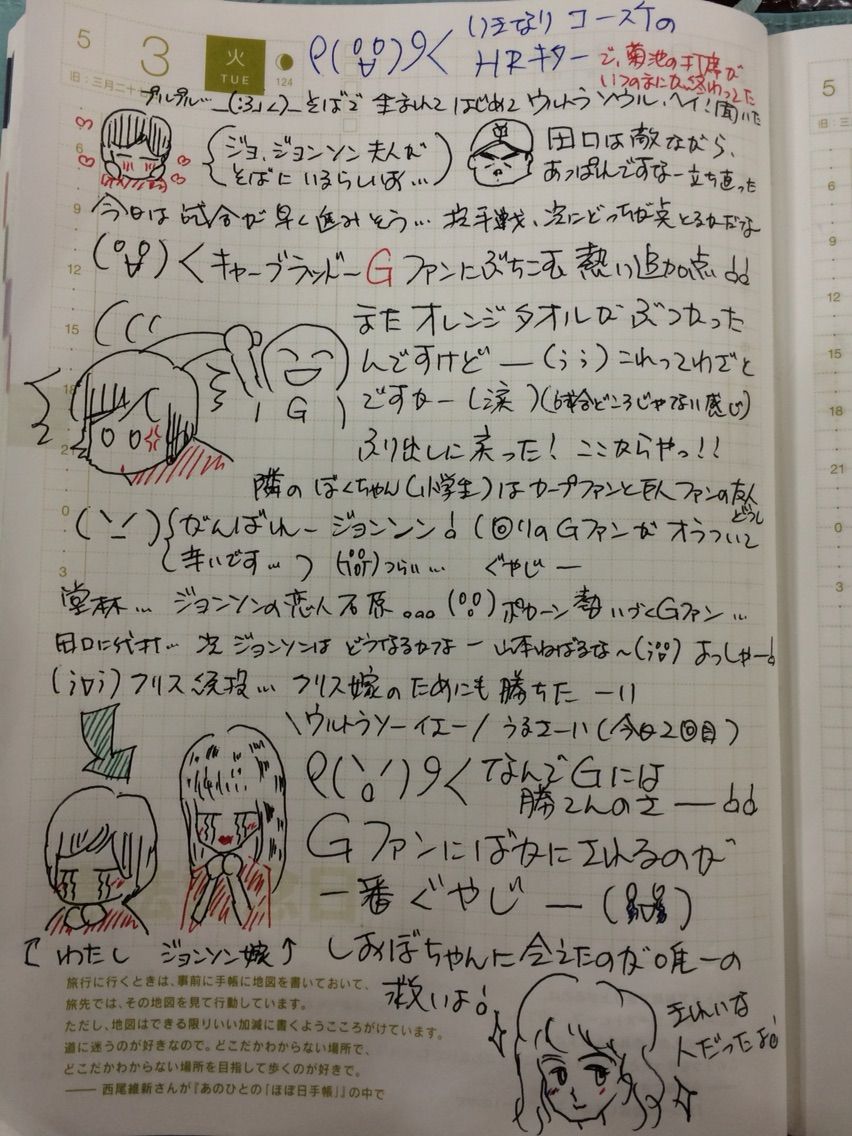 5
3
火
TUE
124
旧：三月二十
いきなり コースケの
HRキター
で、菊池の打席が
いつのまにか終わってた
プルプル… そばで 生まれて はじめて ウルトラ ソウル、ヘイ！聞いた
ジョ、ジョンソン夫人が
そばに いるらしいお…
田口は敵ながら、
あっぱれですなー立ち直った
今日は 試合が 早く進みそう… 投手戦、次にどっちが点とるかだな
く キャーブラッドー Gファンにぶちこむ 熱い追加点
また オレンジタオルが ぶつかった
んですけど ー これってわざと
ですかー（涙）（試合どころじゃない感じ）
G
ふり出しに 戻った！ ここからやっ！！
隣の ぼくちゃん（小学生）は カープファンと巨人ファンの友人
どうし
がんばれー ジョンソン！（回りのGファンが オラついて
辛いです…） つらい… ぐやじー
堂林… ジョンソンの恋人 石原 ポカーン 勢いづくGファン…
田口に代打… 次 ジョンソンは どうなるかなー 山本ねばるな〜 よっしゃー
クリス続投… クリス嫁のためにも 勝ちた ーい
\ウルトラソーイエー/ うるさーい（今日2回目）
なんで Gには
勝てんのさ ー
Gファンに ばかに されるのが
一番 ぐやじ ー
わたし ジョンソン嫁↑
しおぼちゃんに 会えたのが 唯一の
救いよ！
きれいな
人だったよ！
旅行に行くときは、事前に手帳に地図を書いておいて、
旅先では、その地図を見て行動しています。
ただし、地図はできる限りいい加減に書くようこころがけています。
道に迷うのが好きなので。どこだかわからない場所で、
どこだかわからない場所を目指して歩くのが好きで。
—— 西尾維新さんが『あのひとの「ほぼ日手帳」』の中で